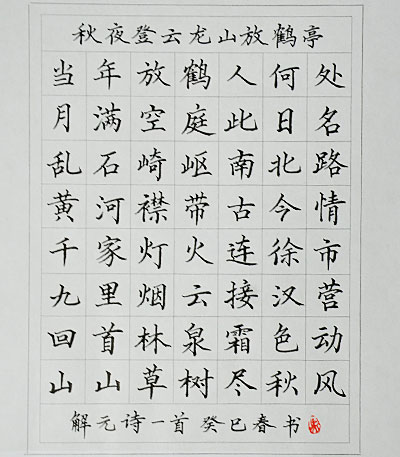 秋夜登云龙山放鹤亭
当年放鹤人何处
月满空庭此日名
乱石崎岖南北路
黄河襟带古今情
千家灯火连徐市
九里烟云接汉营
回首林泉霜色动
山山草树尽秋风
解元诗一首癸巳春书